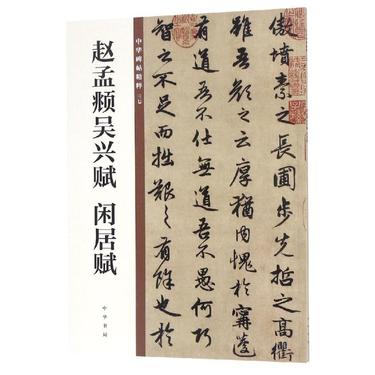 赵孟𫖯吴兴赋 闲居赋
中华书局
中华碑帖精粹
傲墳素之長圃步先哲之高衢
雖吾顏之云厚猶內愧於甯蘧
有道吾不仕無道吾不愚何巧
智之不足而拙艱之有餘也於